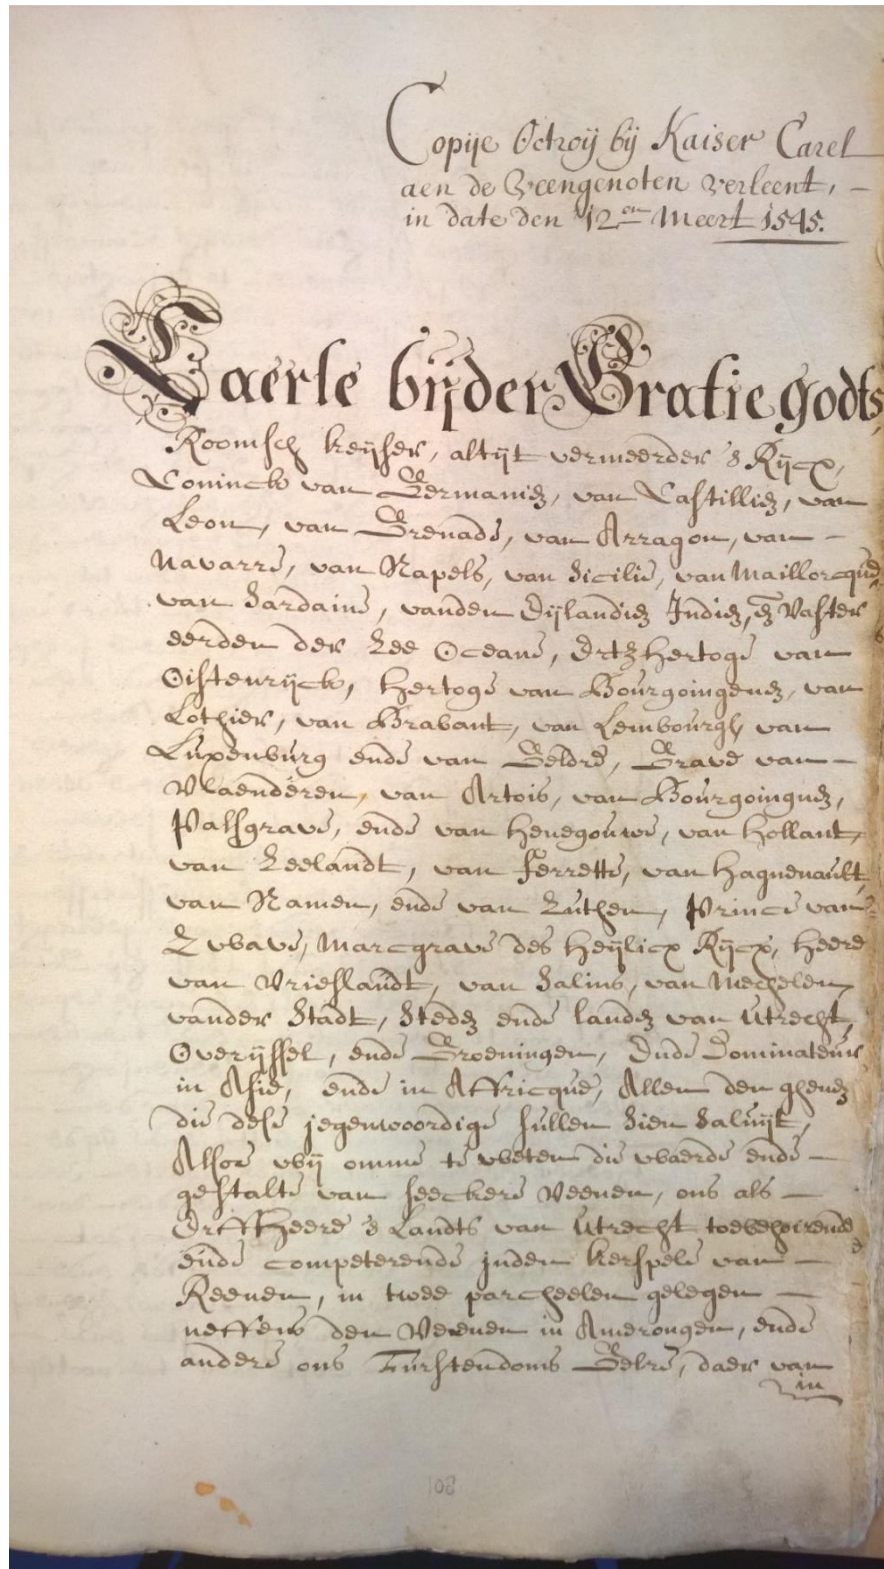 Copije Octroij bij Kaiser Carel
aen de Veengenoten verleent,
in date den 12en Meert 1545.
Caerle bijder Gratie godts,
Roomsch keijser, altijt vermeerder 's Rijcx,
Coninck van Germaniez, van Castilliez, van
Leon, van Grenade, van Arragon, van
Navarre, van Napels, van Sicilie, van Maillorcque,
van Sardaine, vanden Eijlandiez Indiez, ez vaster
eerden der Zee Oceane, Ertzhertoge van
Oistenrijck, Hertoge van Bourgoingenez, van
Lothier, van Brabant, van Lembourgh, van
Luxenburg ende van Geldre, Grave van
Vlaenderen, van Artois, van Bourgoingnez,
Palsgrave, ende van Henegouwe, van Hollant,
van Zeelandt, van Ferrette, van Haguenault,
van Namen, ende van Zuthen, Prince van
Zwave, Marcgrave des Heijlicx Rijcx, Heere
van Vrieslandt, van Salins, van Mechelen,
vander Stadt, Stedez ende landez van Utrecht,
Overijssel, ende Groeningen, Ende Dominateur
in Asie, ende in Affricque, Allen den ghenez
die dese jegenwoordige sullen Sien Saluijt,
Alsoe wij omme te weten die waerde ende
gestalte van seeckere Veenen, ons als
Erffheere 's Landts van Utrecht toebehoerende
ende competerende inden kerspele van
Reenen, in twee parcheelen gelegen
neffens den Veenen in Amerongen, ende
andere ons Furstendoms Gelre, daer van
in